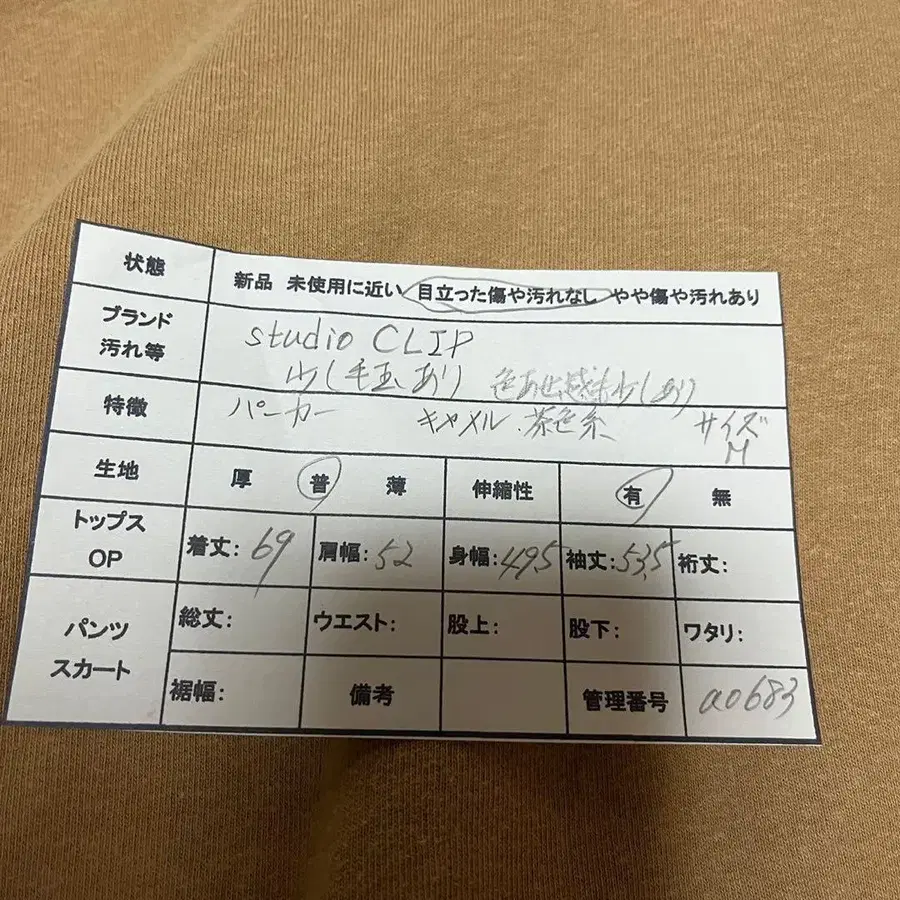 状態 新品 未使用に近い 目立った傷や汚れなし やや傷や汚れあり
ブランド studio CLIP
汚れ等 少し毛玉あり 色あせ感も少しあり
特徴 パーカー キャメル.茶色系 サイズ
M
生地 厚 普 薄 伸縮性 有 無
トップス
OP 着丈: 69 肩幅: 52 身幅: 49.5 袖丈: 53.5 裄丈:
パンツ 総丈: ウエスト: 股上: 股下: ワタリ:
スカート
裾幅: 備考 管理番号 a0683